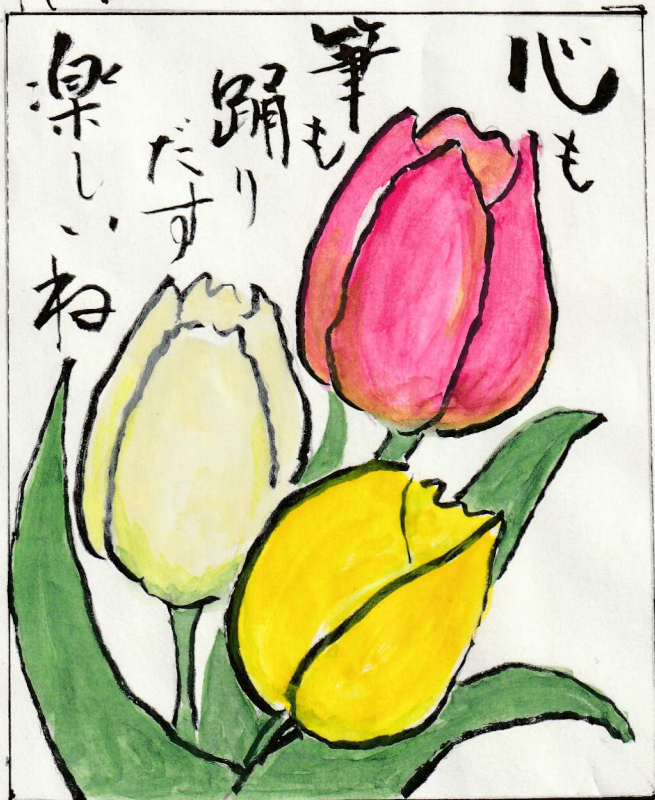 心も
筆も
踊り
だす
楽しいね